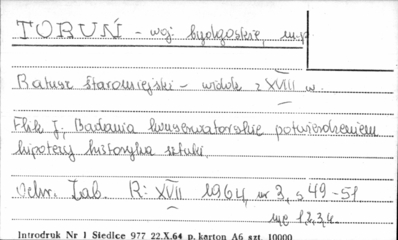 TORUŃ - wg: bydgoskie, m.p.
Ratusz staromiejski - widok z XVIII w.
Flik J; Badania konserwatorskie potwierdzeniem
hipotezy historyka sztuki.
Ochr. Zab. R: XVII 1964, nr 3, s 49-51
ryc 1,2,3,4.
Introdruk Nr 1 Siedlce 977 22.X.64 p. karton A6 szt. 10000